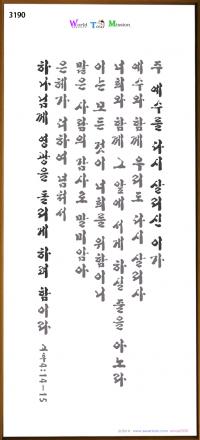 3190
World Text Mission
주 예수를 다시 살리신 이가
예수와 함께 우리도 다시 살리사
너희와 함께 그 앞에 서게 하실 줄을 아노라
이는 모든 것이 너희를 위함이니
많은 사람의 감사로 말미암아
은혜가 더하여 넘쳐서
하나님께 영광을 돌리게 하려 함이라 고후4:14-15